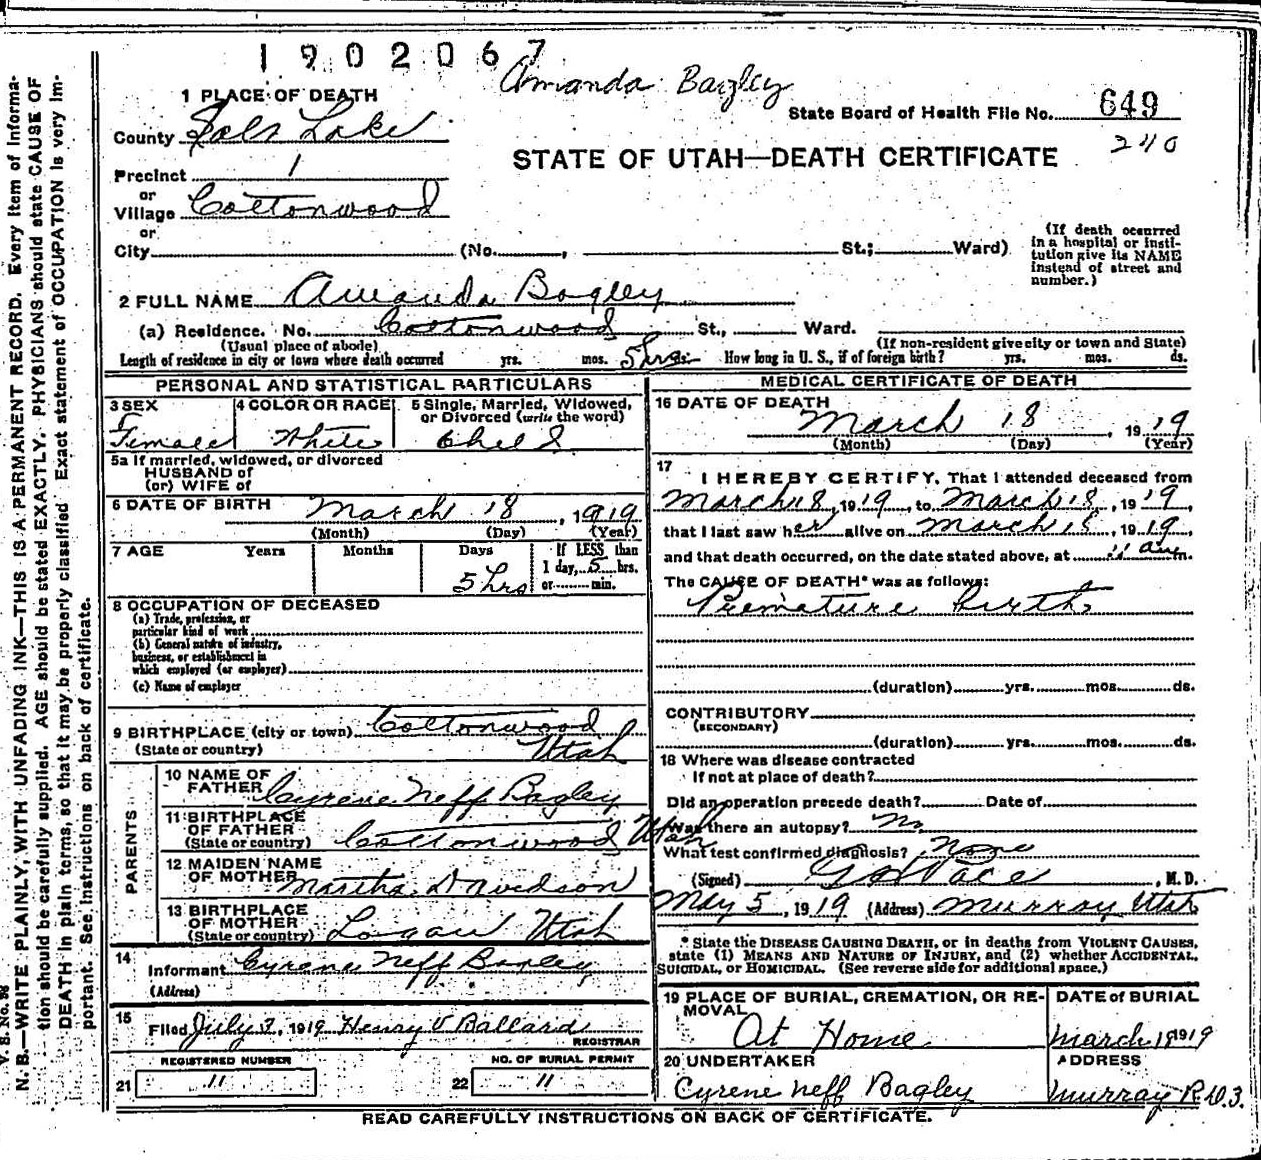 1902067
Amanda Bagley
1 PLACE OF DEATH
State Board of Health File No. 649
County Salt Lake
240
STATE OF UTAH—DEATH CERTIFICATE
Precinct 1
or
Village Cottonwood
or
City (No. , St.; Ward)
(If death occurred
in a hospital or insti-
tution give its NAME
instead of street and
number.)
2 FULL NAME Amanda Bagley
(a) Residence. No. Cottonwood St., Ward.
(Usual place of abode) (If non-resident give city or town and State)
Length of residence in city or town where death occurred yrs. mos. 5 hrs. How long in U. S., if of foreign birth? yrs. mos. ds.
PERSONAL AND STATISTICAL PARTICULARS
3 SEX 4 COLOR OR RACE 5 Single, Married, Widowed,
or Divorced (write the word)
Female White Child
5a If married, widowed, or divorced
HUSBAND of
(or) WIFE of
6 DATE OF BIRTH March 18, 1919
(Month) (Day) (Year)
7 AGE Years Months Days If LESS than
1 day, 5 hrs.
5 hrs or min.
8 OCCUPATION OF DECEASED
(a) Trade, profession, or
particular kind of work
(b) General nature of industry,
business, or establishment in
which employed (or employer)
(c) Name of employer
9 BIRTHPLACE (city or town) Cottonwood
(State or country) Utah
PARENTS
10 NAME OF
FATHER Cyrene Neff Bagley
11 BIRTHPLACE
OF FATHER
(State or country) Cottonwood Utah
12 MAIDEN NAME
OF MOTHER Martha Davidson
13 BIRTHPLACE
OF MOTHER
(State or country) Logan Utah
14
Informant Cyrene Neff Bagley
(Address)
15
Filed July 3, 1919 Henry V Ballard
REGISTRAR
REGISTERED NUMBER NO. OF BURIAL PERMIT
21 11 22 11
MEDICAL CERTIFICATE OF DEATH
16 DATE OF DEATH
March 18, 1919
(Month) (Day) (Year)
17
I HEREBY CERTIFY, That I attended deceased from
March 18, 1919, to March 18, 1919,
that I last saw her alive on March 18, 1919,
and that death occurred, on the date stated above, at 11 am.
The CAUSE OF DEATH* was as follows:
Premature birth
(duration) yrs. mos. ds.
CONTRIBUTORY
(SECONDARY)
(duration) yrs. mos. ds.
18 Where was disease contracted
If not at place of death?
Did an operation precede death? Date of
Was there an autopsy? No
What test confirmed diagnosis? None
(Signed) Pace, M. D.
May 5, 1919 (Address) Murray Utah
* State the DISEASE CAUSING DEATH, or in deaths from VIOLENT CAUSES,
state (1) MEANS AND NATURE OF INJURY, and (2) whether ACCIDENTAL,
SUICIDAL, or HOMICIDAL. (See reverse side for additional space.)
19 PLACE OF BURIAL, CREMATION, OR RE-
MOVAL
At Home
DATE of BURIAL
March 18 1919
20 UNDERTAKER
Cyrene Neff Bagley
ADDRESS
Murray R.D.3.
READ CAREFULLY INSTRUCTIONS ON BACK OF CERTIFICATE.
V. S. No. 98
N. B.—WRITE PLAINLY, WITH UNFADING INK—THIS IS A PERMANENT RECORD. Every item of informa-
tion should be carefully supplied. AGE should be stated EXACTLY. PHYSICIANS should state CAUSE OF
DEATH in plain terms, so that it may be properly classified. Exact statement of OCCUPATION is very im-
portant. See instructions on back of certificate.